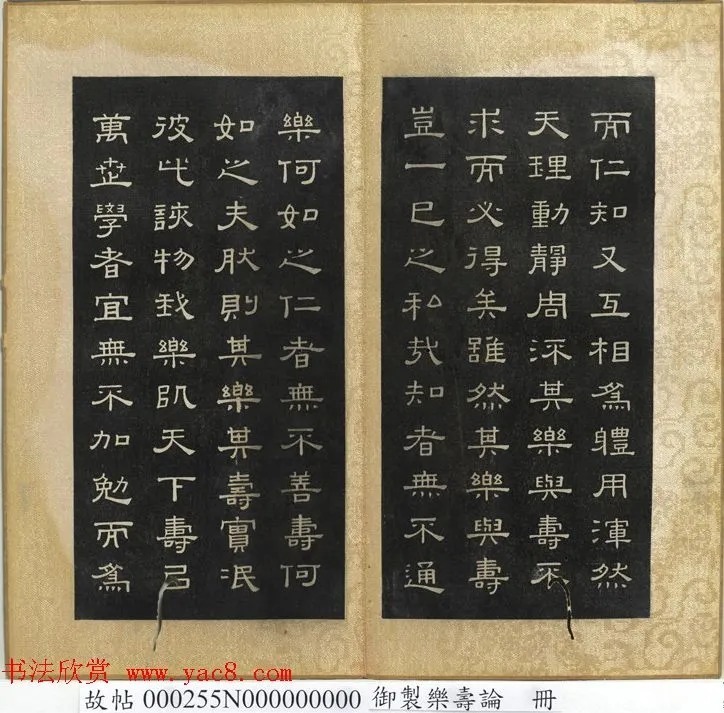 而仁知又互相為體用渾然
天理動靜周流其樂與壽不
求而必得矣雖然其樂與壽
豈一己之私哉知者無不通
樂何如之仁者無不善壽何
如之夫肰則其樂其壽實泯
彼此該物我樂即天下壽己
萬世學者宜無不加勉而為
书法欣赏 www.yac8.com
故帖 000255N000000000 御製樂壽論 冊